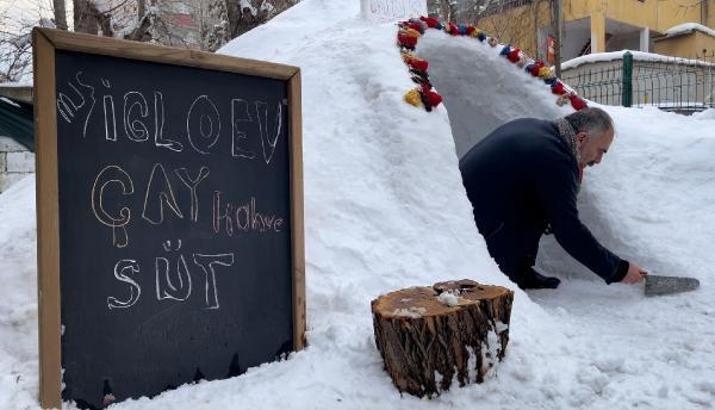 İGLO EV
ÇAY Kahve
SÜT